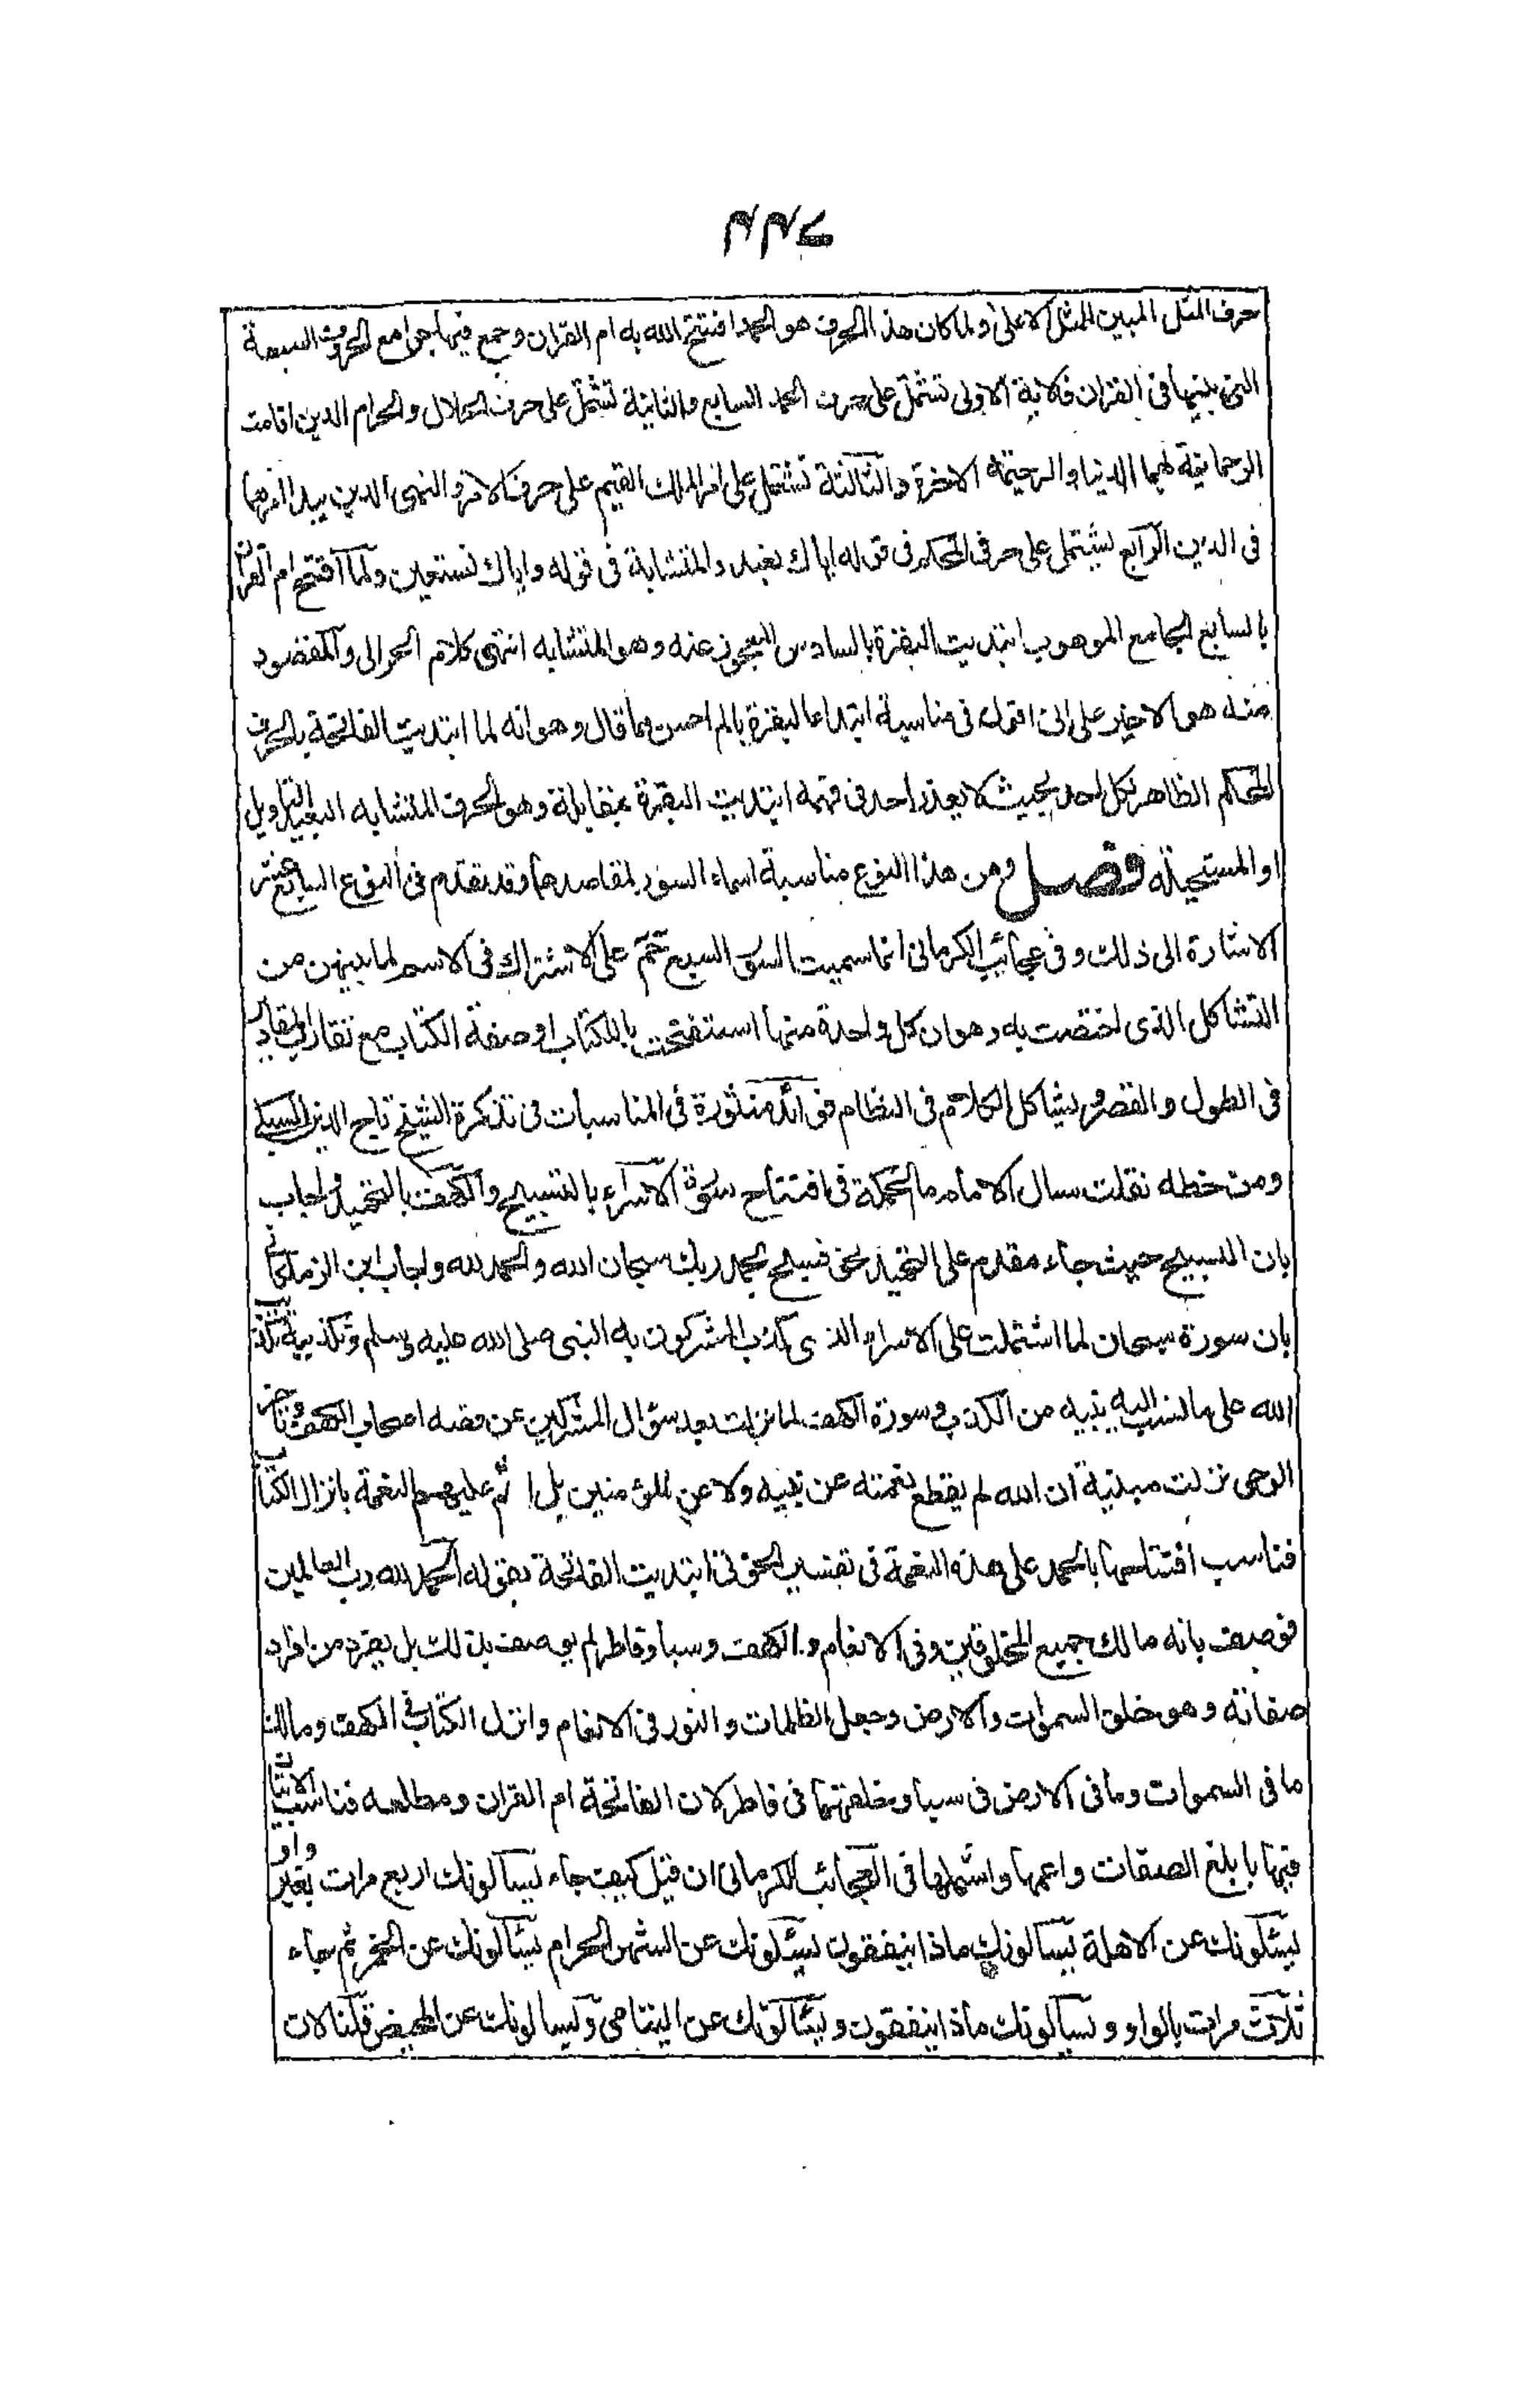 ٤٤٧
حرف المثل المبين المثل الاعلى ولما كان هذا الحرف هو الحمد افتتح الله به ام القران وجمع فيها جوامع الحروف السبعة
التى بثها فى القران فالاية الاولى تشتمل على حرف الحمد السابع والثانية تشتمل على حرف الحلال والحرام الذين اقامت
الرحمانية لهما الدنيا والرحيمية الاخرة والثالثة تشتمل على امر الملك القيم على حرف الامر والنهى الذين يبدا امرهما
فى الدين الرابع يشتمل على حرفى المحكم فى قوله اياك نعبد والمتشابة فى قوله واياك نستعين ولما افتتح ام القران
بالسابع الجامع الموهوب ابتديت البقرة بالسادس المعجوز عنه وهو المتشابه انتهى كلام الحرالى والمقصود
منه هو الاخير على انى اقول فى مناسبة ابتداء البقرة بالم احسن مما قال وهو انه لما ابتديت الفاتحة بالحرف
المحكم الظاهر لكل احد بحيث لا يعذر احد فى فهمه ابتديت البقرة بمقابلة وهو الحرف المتشابه البعيد التاويل
او المستحيلة فصل ومن هذا النوع مناسبة اسماء السور لمقاصدها وقد تقدم فى النوع السابع عشر
الاشارة الى ذلك وفى عجائب الكرمانى انما سميت السور السبع حم على الاشتراك فى الاسم لما بينهن من
التشاكل الذى اختصت به وهو ان كل واحدة منها استفتحت بالكتاب او صفة الكتاب مع تقارب المقادير
فى الطول والقصر وتشاكل الكلام فى النظام فوائد منثورة فى المناسبات فى تذكرة الشيخ تاج الدين السبكى
ومن خطه نقلت سال الامام ما الحكمة فى افتتاح سورة الاسراء بالتسبيح والكهف بالتحميد واجاب
بان التسبيح حيث جاء مقدم على التحميد نحو فسبح بحمد ربك سبحان الله والحمد لله واجاب ابن الزملكانى
بان سورة سبحان لما اشتملت على الاسراء الذى كذب المشركون به النبى صلى الله عليه وسلم وتكذيبه تكذيب
الله على ما نسب اليه نبيه من الكذب وسورة الكهف لما نزلت بعد سؤال المشركين عن قصه اصحاب الكهف وتاخر
الوحى نزلت مبينة ان الله لم يقطع نعمته عن نبيه ولا عن المؤمنين بل اتم عليهم النعمة بانزال الكتاب
فناسب افتتاحها بالحمد على هذه النعمة فى تفسير الخوى ابتديت الفاتحة بقوله الحمد لله رب العالمين
فوصف بانه مالك جميع المخلوقين وفى الانعام والكهف وسبا وفاطر لم يوصف بذلك بل بفرد من افراد
صفاته وهو خلق السموات والارض وجعل الظلمات والنور فى الانعام وانزل الكتاب فى الكهف ومالك
ما فى السموات وما فى الارض فى سبا وخلقهما فى فاطر لان الفاتحة ام القران ومطلعه فناسب الاتيان
فيها بابلغ الصفات واعمها واشملها فى العجائب للكرمانى ان قيل كيف جاء يسالونك اربع مرات بغير واو
يسئلونك عن الاهلة يسالونك ماذا ينفقون يسئلونك عن الشهر الحرام يسالونك عن الخمر ثم جاء
ثلاث مرات بالواو ويسالونك ماذا ينفقون ويسالونك عن اليتامى ويسالونك عن المحيض قلنا لان